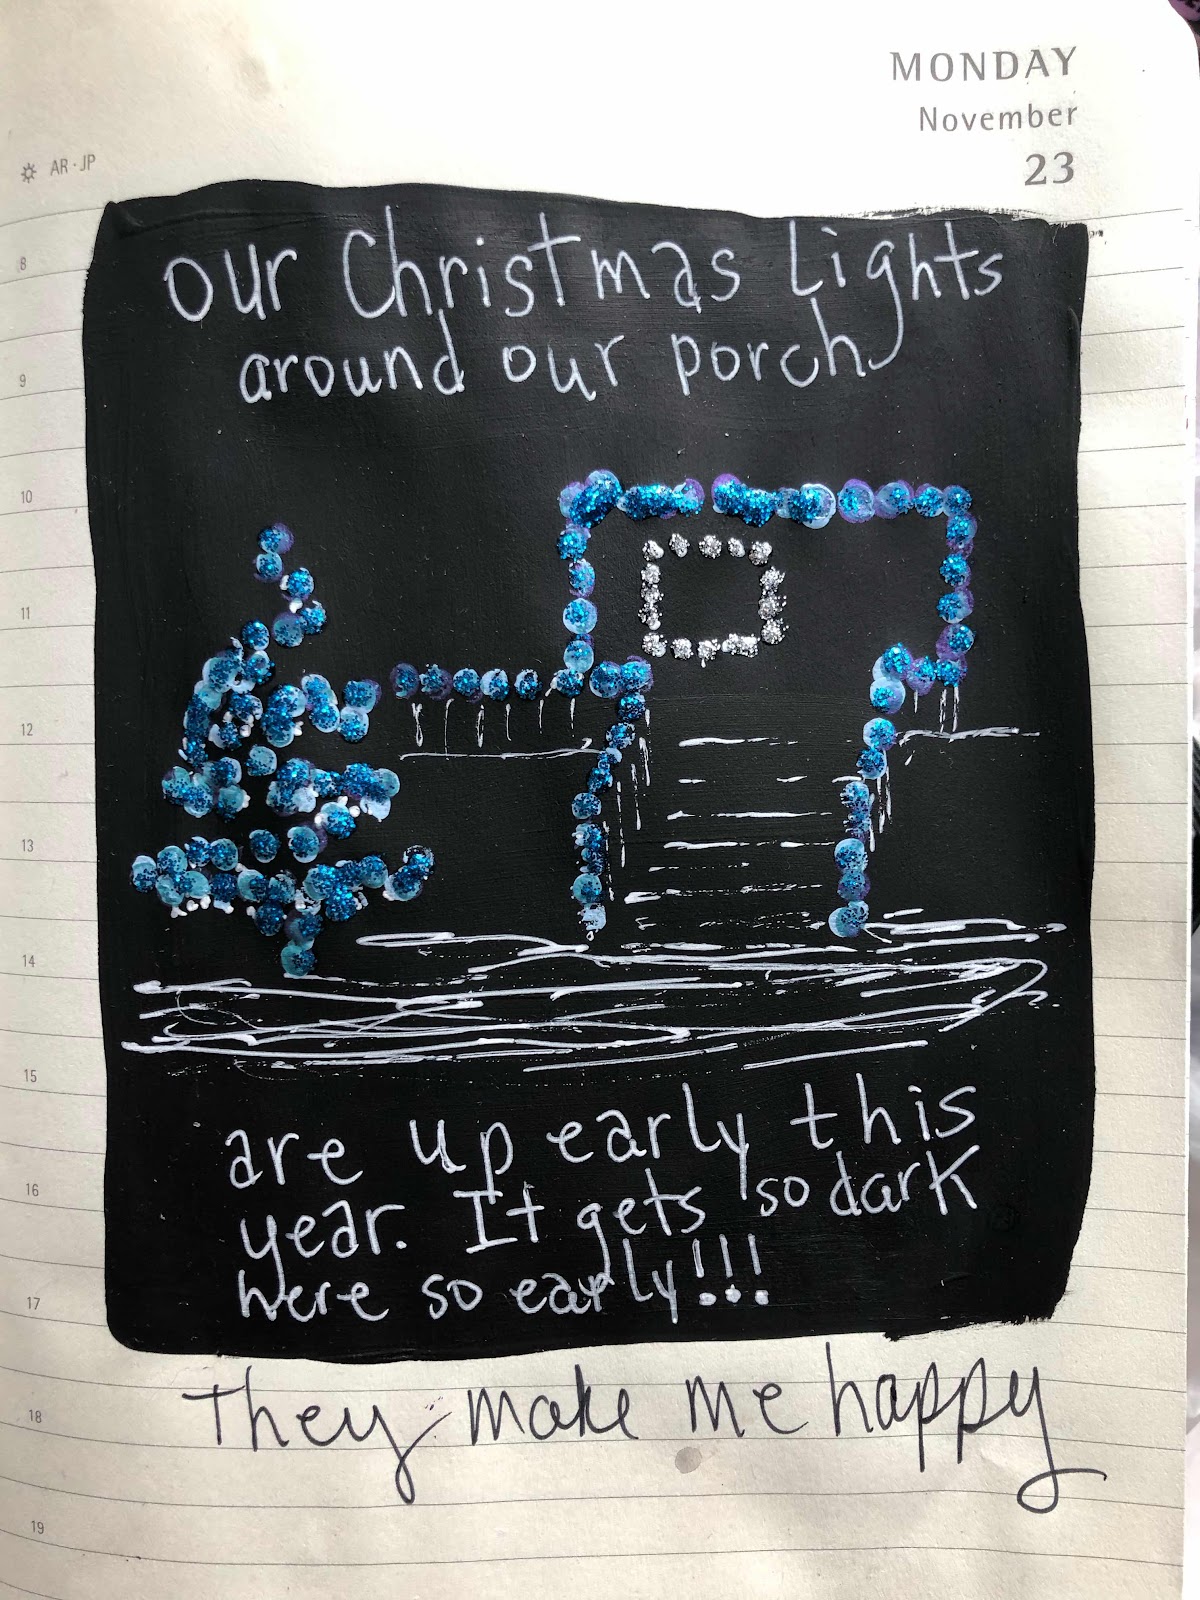 MONDAY
November
23
AR · JP
8
our Christmas Lights
around our porch
9
10
11
12
13
14
15
are up early this
year. It gets so dark
here so early!!!
16
17
They make me happy
18
19